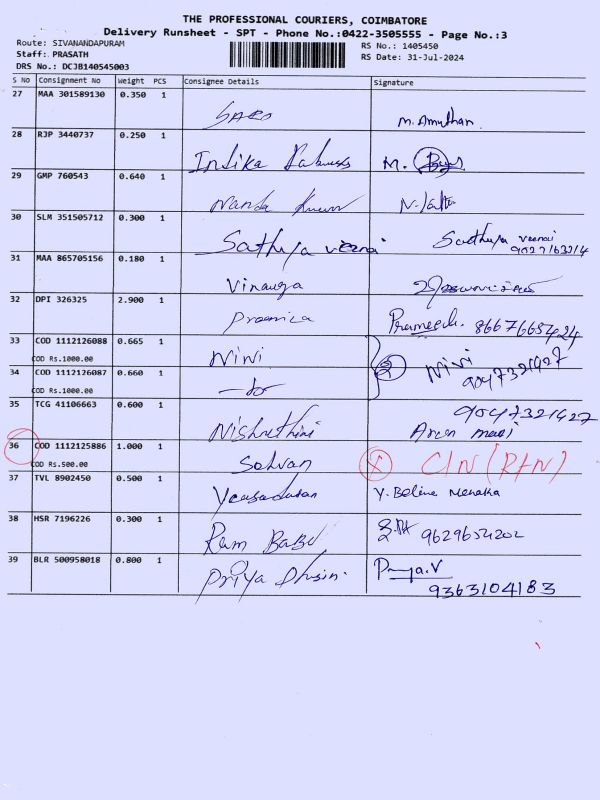 THE PROFESSIONAL COURIERS, COIMBATORE
Delivery Runsheet - SPT - Phone No.:0422-3505555 - Page No.:3
Route: SIVANANDAPURAM
Staff: PRASATH
DRS No.: DCJB140545003
RS No.: 1405450
RS Date: 31-Jul-2024
S No Consignment No Weight PCS Consignee Details Signature
27 MAA 301589130 0.350 1
SARO M.Amuthan
28 RJP 3440737 0.250 1
Indika M.
29 GMP 760543 0.640 1
Nanda Kumar N.Lalta
30 SLM 351505712 0.300 1
Sathya veenai Sathya veenai
31 MAA 865705156 0.180 1
Vinauya
32 DPI 326325 2.900 1
33 COD 1112126088 0.665 1
COD Rs.1000.00 Nivi
34 COD 1112126087 0.660 1
COD Rs.1000.00 -do- 2 Nivi 9047321927
35 TCG 41106663 0.600 1 9047321927
Nishnthini
36 COD 1112125886 1.000 1
COD Rs.500.00 Selvan X C/N (R/N)
37 TVL 8902450 0.500 1
Y. Beline Menaka
38 HSR 7196226 0.300 1
Ram Babu 9629654202
39 BLR 500958018 0.800 1
Priya Priya.V
9363104183